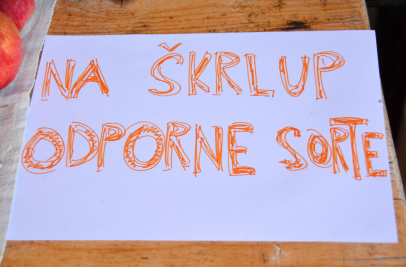 NA ŠKRLUP
ODPORNE SORTE